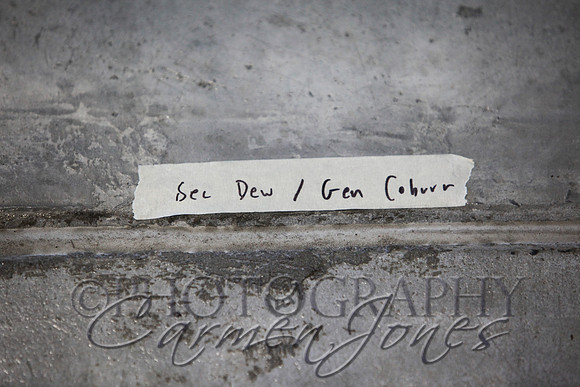 Sec Dew / Gen Coburr
©PHOTOGRAPHY
Carmen Jones